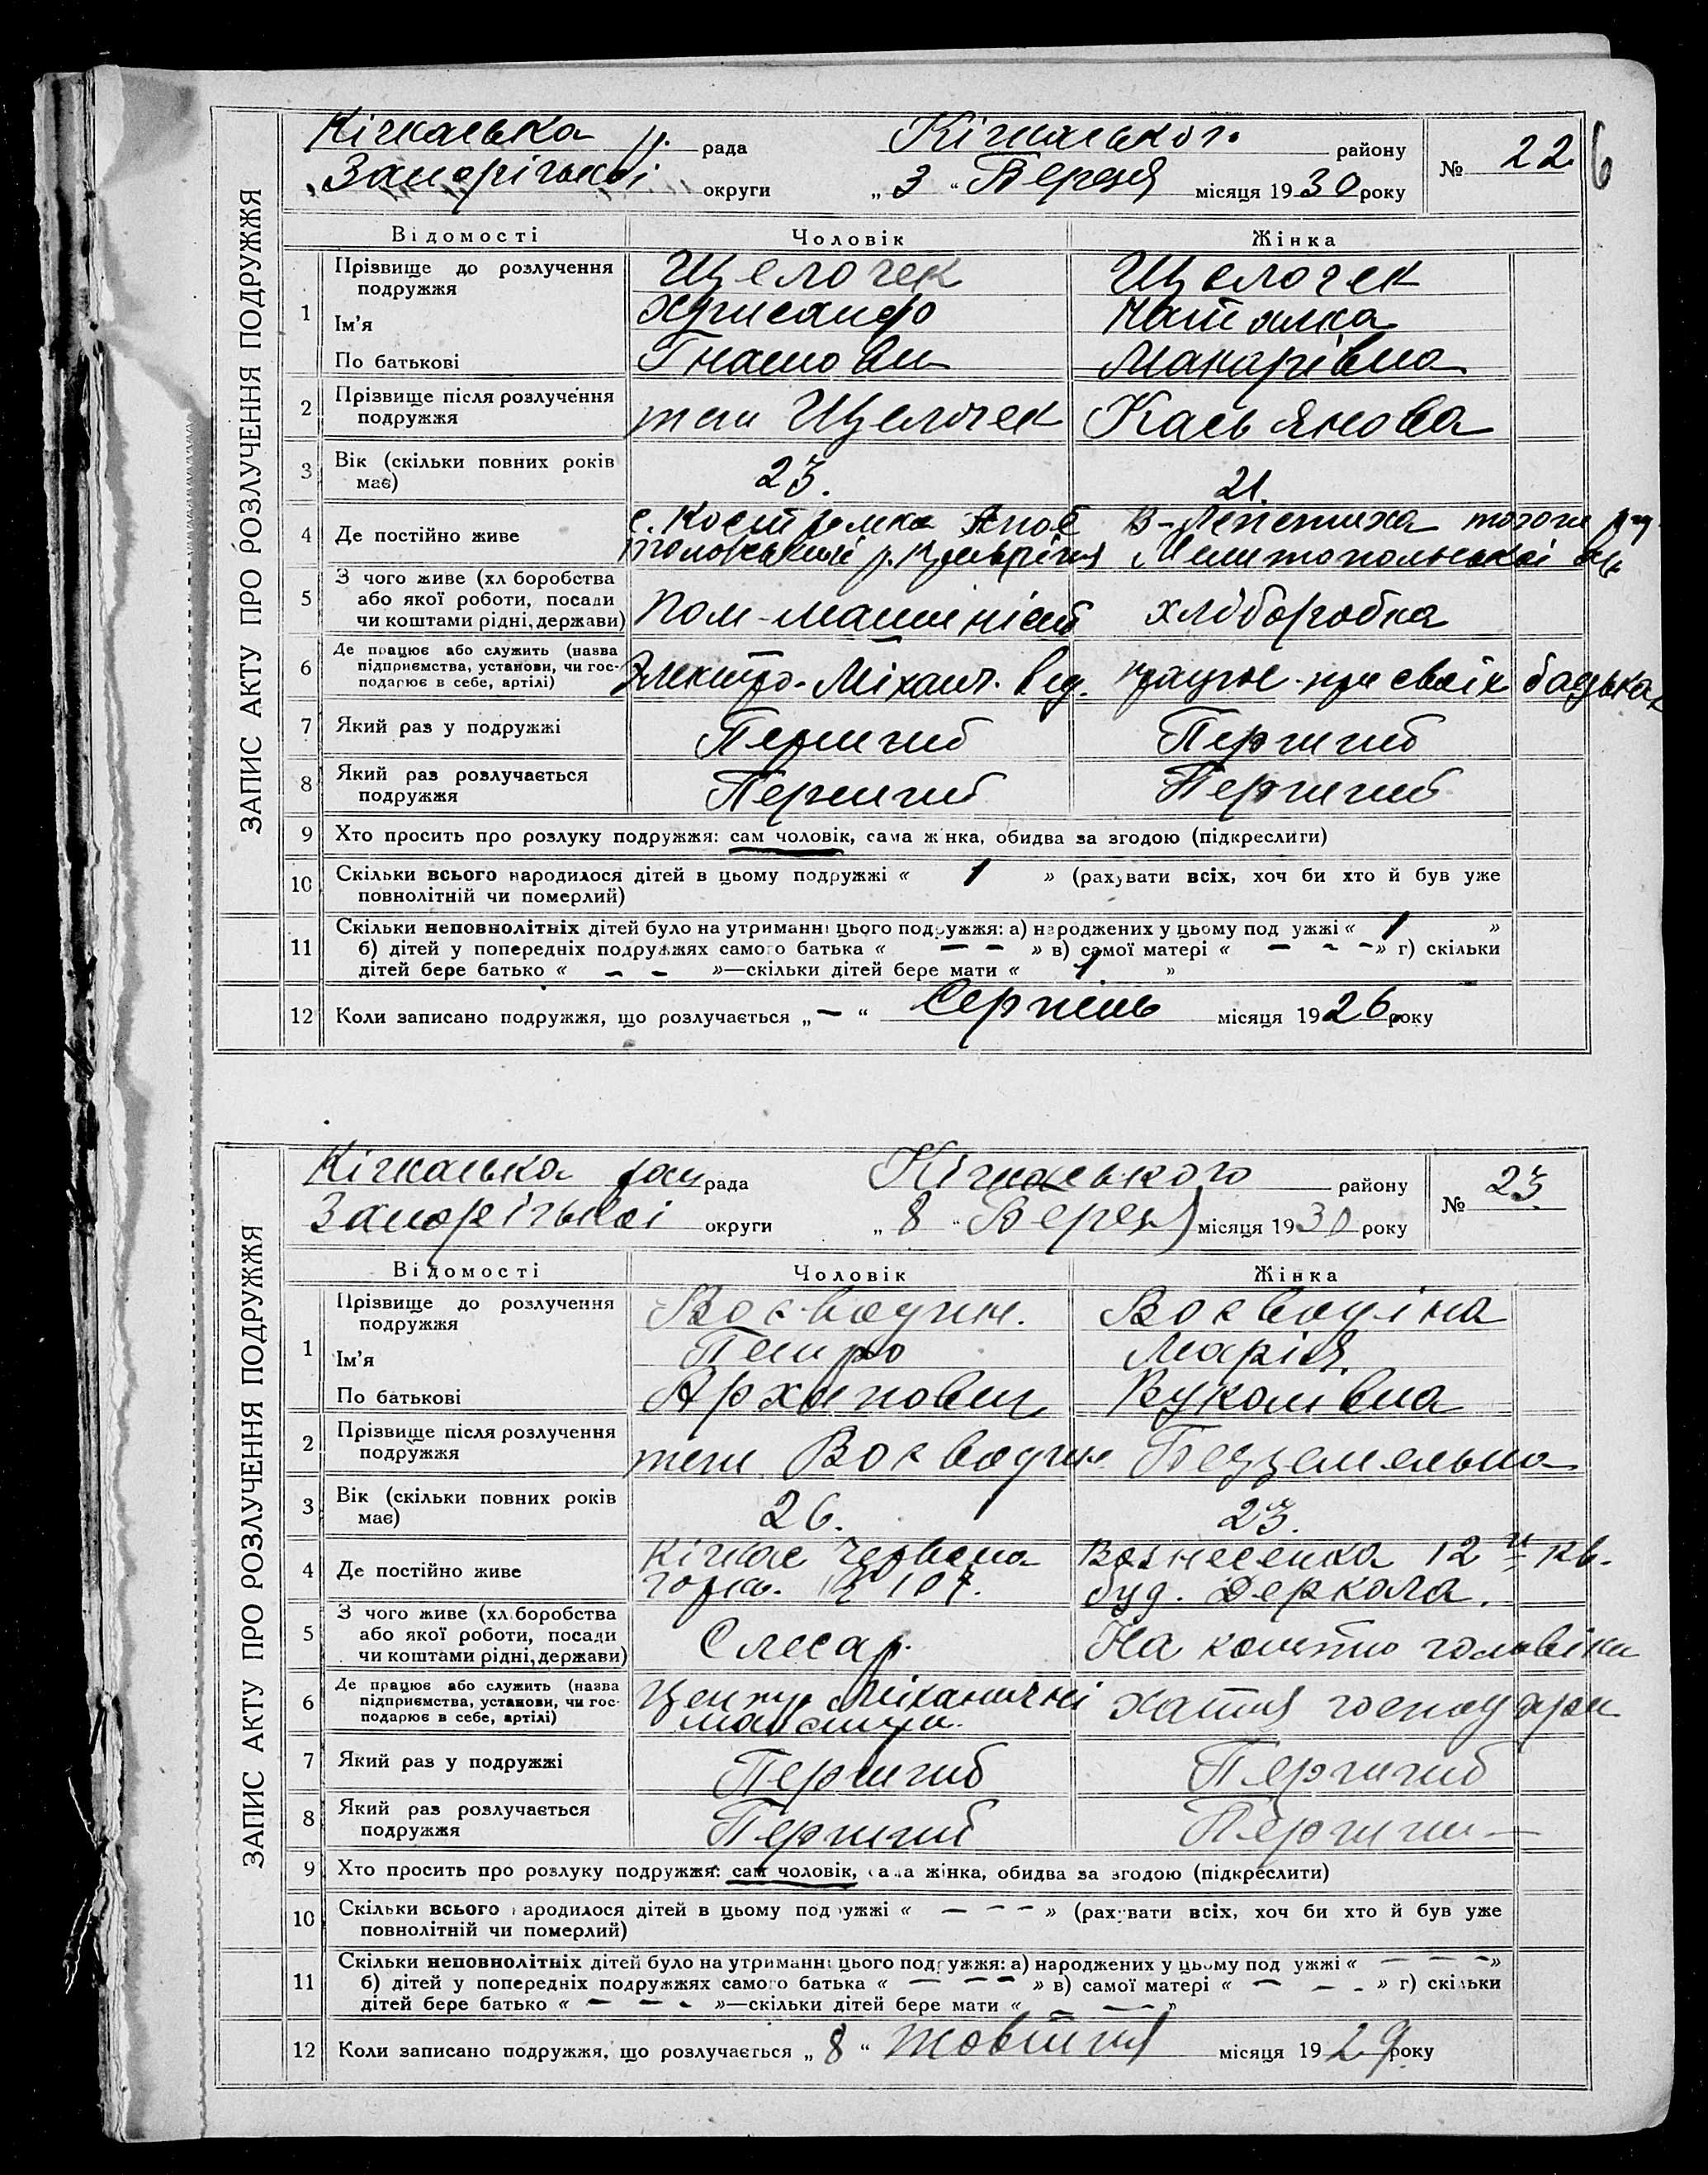 Кічкаська р. рада Кічкаського району № 22 6
Запорізької округи „ 3 “ Березня місяця 1930 року
ЗАПИС АКТУ ПРО РОЗЛУЧЕННЯ ПОДРУЖЖЯ
Відомості Чоловік Жінка
1 Прізвище до розлучення подружжя Щелочек Щелочек
Ім'я Хрисанф Наталка
По батькові Гнатови Макарівна
2 Прізвище після розлучення подружжя теж Щелочек Касьянова
3 Вік (скільки повних років має) 23. 21.
4 Де постійно живе с. Костромка В-Лепетиха того ж
Мелитопольської окр
5 З чого живе (хліборобства або якої роботи, посади чи коштами рідні, держави) Пом-машиніст хліборобка
6 Де працює або служить (назва підприємства, установи, чи господарює в себе, артілі) Электро-Міхани. від. працює при своїх батьках
7 Який раз у подружжі Перший Перший
8 Який раз розлучається подружжя Перший Перший
9 Хто просить про розлуку подружжя: сам чоловік, сама жінка, обидва за згодою (підкреслити)
10 Скільки всього народилося дітей в цьому подружжі « 1 » (рахувати всіх, хоч би хто й був уже
повнолітній чи померлий)
11 Скільки неповнолітніх дітей було на утриманні цього подружжя: а) народжених у цьому подружжі « 1 »
б) дітей у попередніх подружжях самого батька « — — » в) самої матері « — — — » г) скільки
дітей бере батько « — — »—скільки дітей бере мати « 1 »
12 Коли записано подружжя, що розлучається „ — “ Серпень місяця 1926 року
Кічкаська рай рада Кічкаського району № 23
Запорізької округи „ 8 “ Березня місяця 1930 року
ЗАПИС АКТУ ПРО РОЗЛУЧЕННЯ ПОДРУЖЖЯ
Відомості Чоловік Жінка
1 Прізвище до розлучення подружжя Воєводин. Воєводіна
Ім'я Петро Марія
По батькові Архипович Вуколівна
2 Прізвище після розлучення подружжя теж Воєводин Безземельна
3 Вік (скільки повних років має) 26. 23.
4 Де постійно живе Кічкас Червона Вознесенка 12й кв.
горка. № 107. буд. Деркала.
5 З чого живе (хліборобства або якої роботи, посади чи коштами рідні, держави) Слесар. На кошти чоловіка
6 Де працює або служить (назва підприємства, установи, чи господарює в себе, артілі) Центр Міханичні хатня господар
майстерн.
7 Який раз у подружжі Перший Перший
8 Який раз розлучається подружжя Перший Перший —
9 Хто просить про розлуку подружжя: сам чоловік, сама жінка, обидва за згодою (підкреслити)
10 Скільки всього народилося дітей в цьому подружжі « — — — » (рахувати всіх, хоч би хто й був уже
повнолітній чи померлий)
11 Скільки неповнолітніх дітей було на утриманні цього подружжя: а) народжених у цьому подружжі « — — — »
б) дітей у попередніх подружжях самого батька « — — — » в) самої матері « — — — » г) скільки
дітей бере батько « — — — »—скільки дітей бере мати « — — »
12 Коли записано подружжя, що розлучається „ 8 “ Жовтня місяця 1929 року